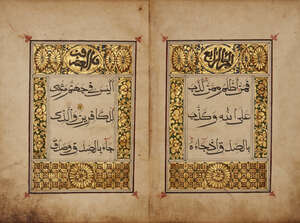 فمن اظلم ممن كذب
على الله وكذب
بالصدق اذ جاءه
اليس في جهنم مثوى
للكافرين والذي
جاء بالصدق وصدق